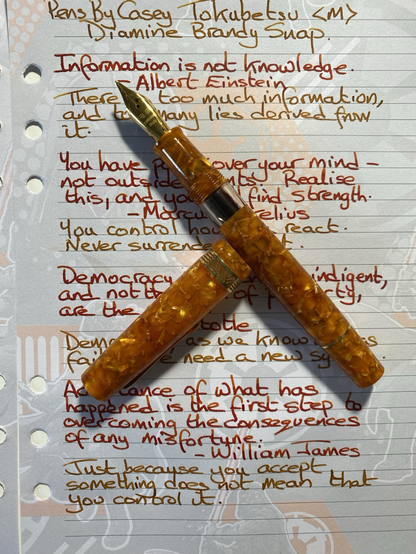 Pens By Casey Tokubetsu <M>
Diamine Brandy Snap.
Information is not knowledge.
- Albert Einstein
There too much information,
and many lies derived from
it.
You have over your mind -
not outside Realise
this, and you find strength.
- Marcus Aurelius
You control how react.
Never surrender
Democracy indigent,
and not the of
are the
Democracy as we know
need a new
Acceptance of what has
happened is the first step to
overcoming the consequences
of any misfortune.
- William James
Just because you accept
something does not mean that
you control it.